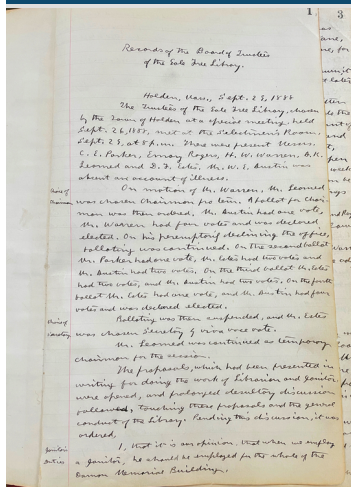 1.
3
Records of the Board of Trustees
of the Gale Free Library.
Holden, Mass., Sept. 28, 1888
The Trustees of the Gale Free Library, chosen
by the Town of Holden at a special meeting held
Sept. 26, 1888, met at the Selectmen's Room,
Sept. 28, at 8 p.m. There were present Messrs.
C. E. Parker, Emory Rogers, H. W. Warren,
Learned and D. F. Estes. Mr. W. E. Austin was
absent on account of illness.
Choice of
Chairman
On motion of Mr. Warren, Mr. Learned
was chosen Chairman pro tem. A ballot for Chair-
man was then ordered, Mr. Austin had one vote,
Mr. Warren had four votes and was declared
elected. On his peremptorily declining the office,
balloting was continued. On the second ballot
Mr. Parker had one vote, Mr. Estes had two votes and
Mr. Austin had two votes. On the third ballot Mr. Estes
had two votes, and Mr. Austin had two votes. On the fourth
ballot Mr. Estes had one vote, and Mr. Austin had four
votes and was declared elected.
Choice of
Secretary
Balloting was then suspended, and Mr. Estes
was chosen Secretary by viva voce vote.
Mr. Learned was continued as temporary
chairman for the session.
The proposals, which had been presented in
writing for doing the work of Librarian and Janitor
were opened, and prolonged desultory discussion
followed, touching these proposals and the general
conduct of the Library. Pending this discussion, it was
ordered,
Janitor's
duties
1, that it is our opinion, that when we employ
a janitor, he should be employed for the whole of the
Damon Memorial Building.